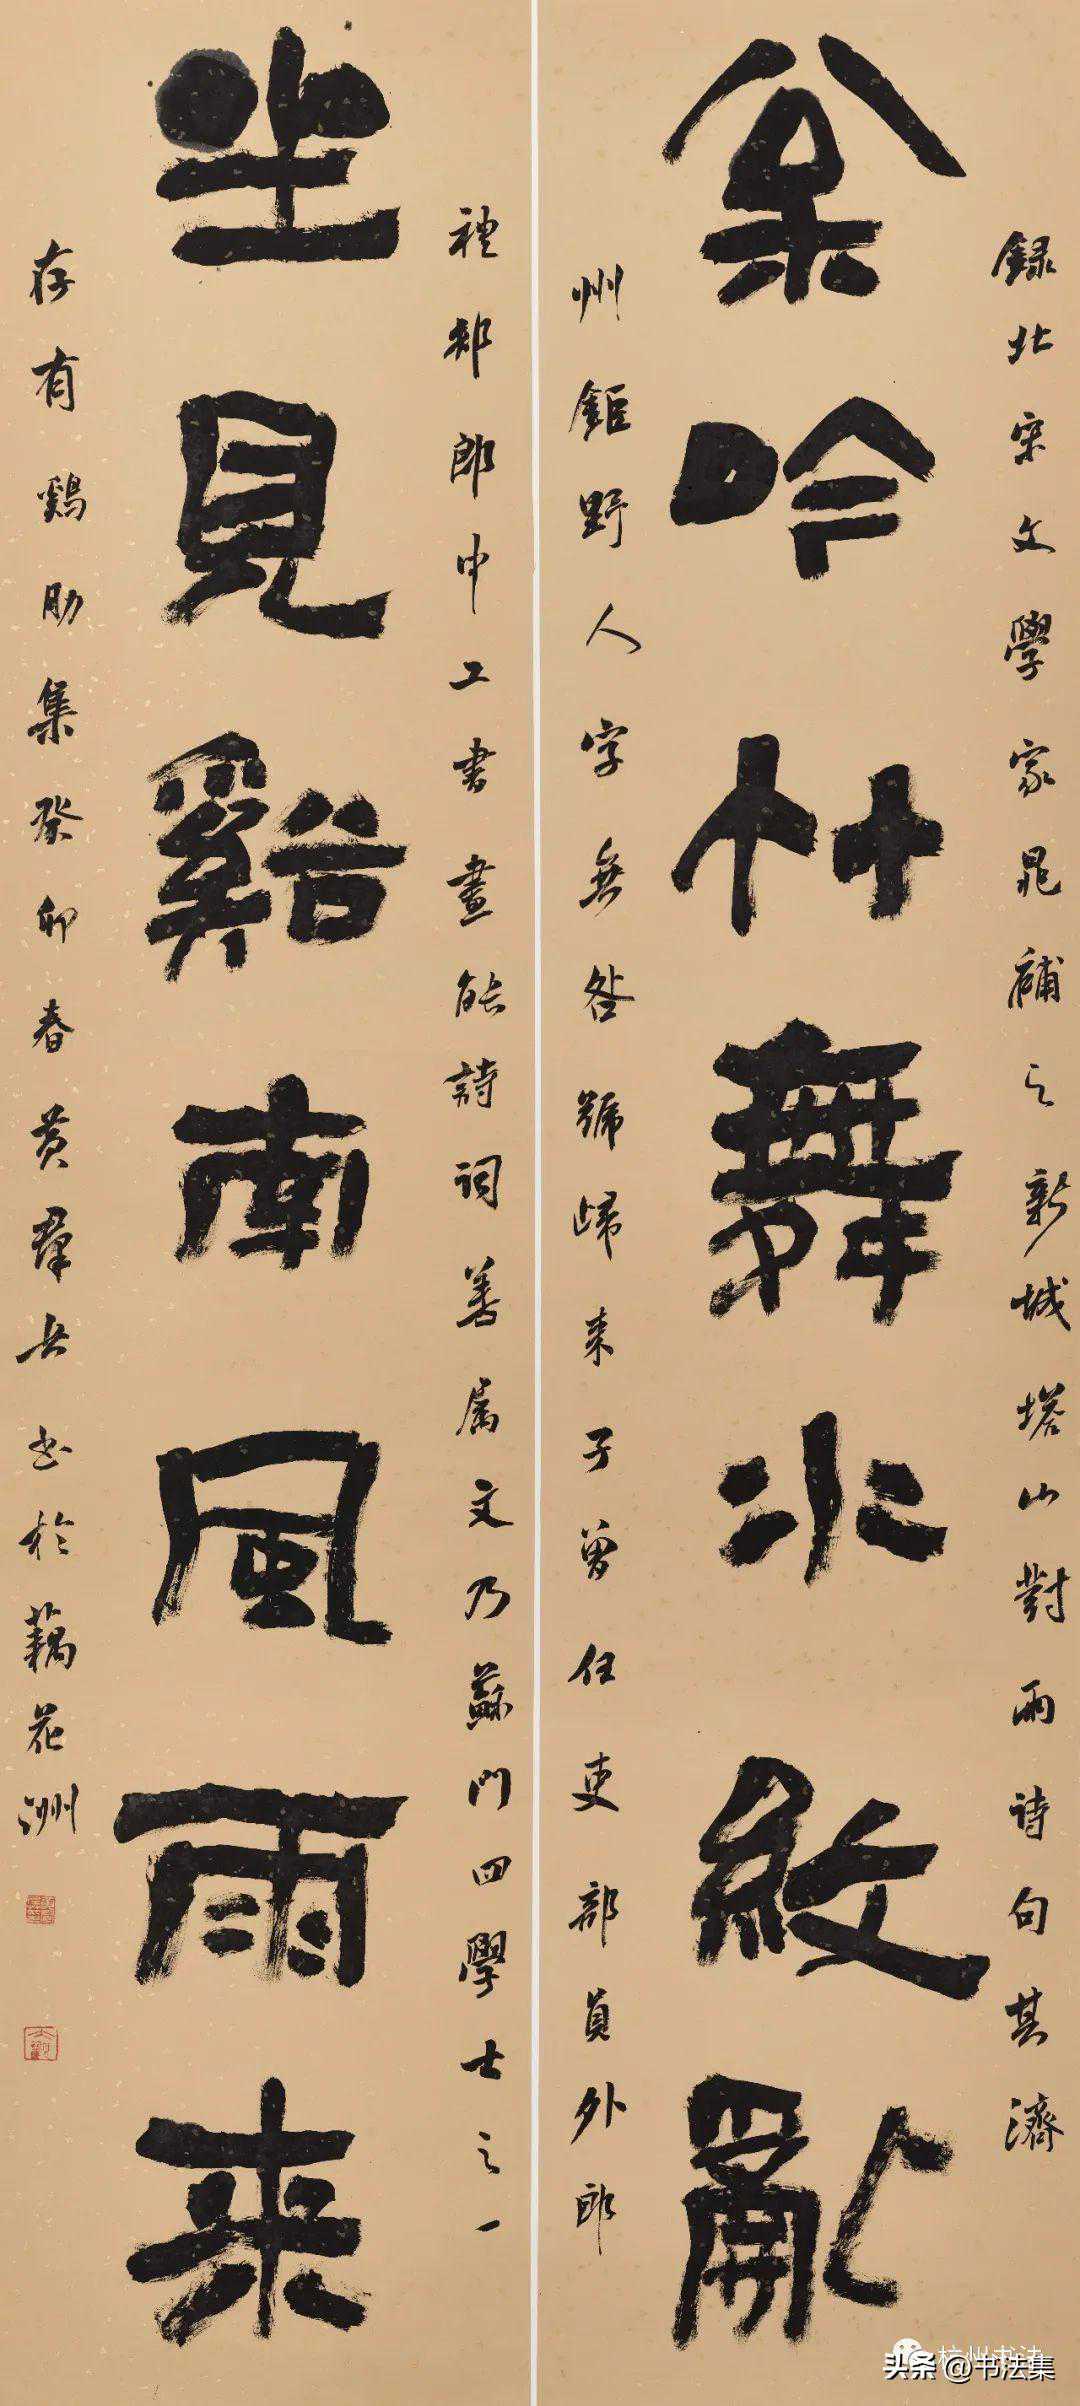 録北宋文學家晁補之新城塔山對雨诗句其濟
枀吟竹舞水紋亂
州鉅野人字無咎號歸来子曾任吏部員外郎
禮部郎中工書畫能詩詞善属文乃蘇門四學士之一
坐見谿南風雨来
存有鷄肋集癸卯春黄羣兵书於藕花洲
杭州书法
头条 @书法集